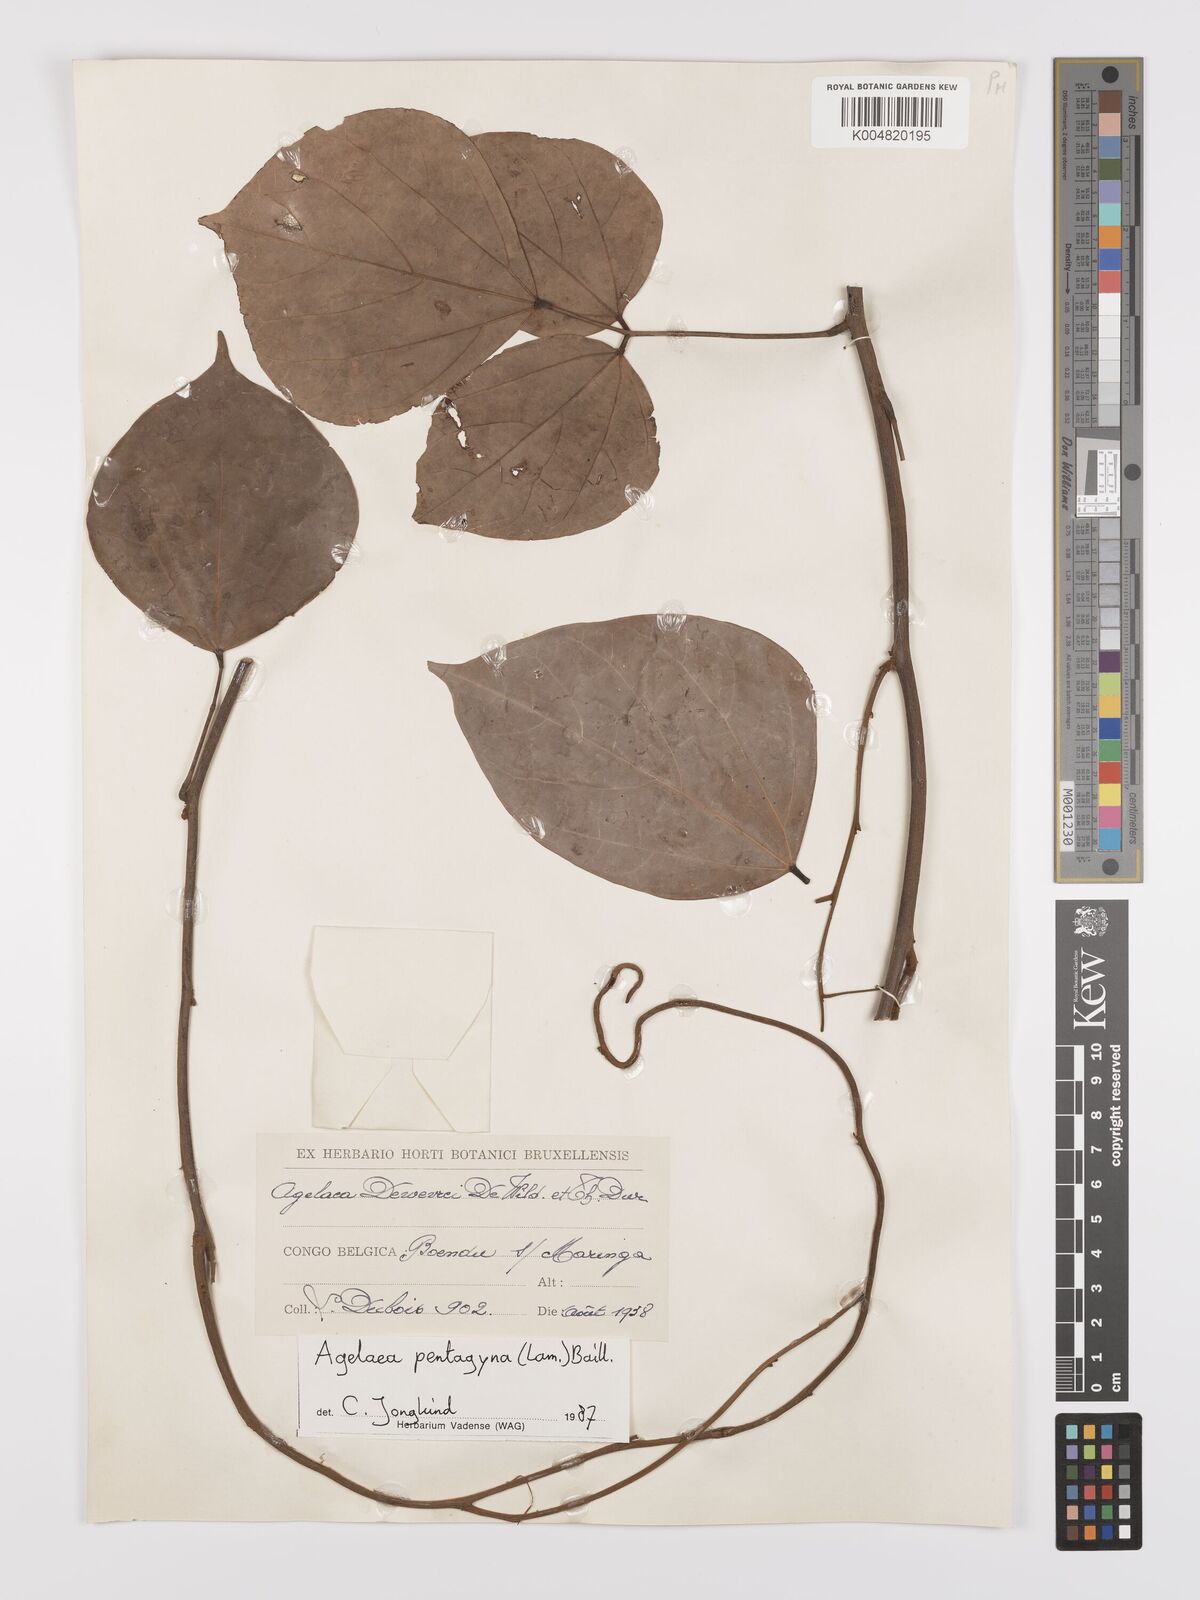 ROYAL BOTANIC GARDENS KEW
K004820195
PH
EX HERBARIO HORTI BOTANICI BRUXELLENSIS
Agelaea Dewevrei De Wild. et Th. Dur
CONGO BELGICA, Boende s/ Maringa
Alt :
Coll. Dubois 902. Die : août 1938
Agelaea pentagyna (Lam.) Baill.
det. C. Jongkind 1987
Herbarium Vadense (WAG)
inches
Density
Don Williams
M001230
centimeters
Royal Botanic Gardens
Kew
copyright reserved
0 1 2 3 4 5 6 7 8 9 10
cm